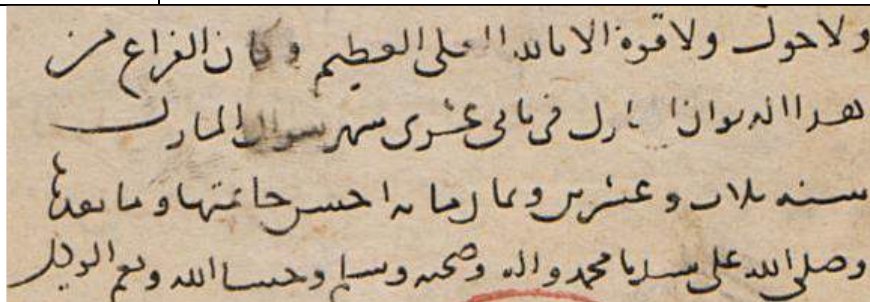 ولا حول ولا قوة الا بالله العلي العظيم وكان الفراغ من
هدا الديوان المبارك في ثاني عشري شهر شوال المبارك
سنه ثلاث وعشرين وثمانمائه احسن خاتمتها وما بعدها
وصلى الله على سيدنا محمد واله وصحبه وسلم وحسبنا الله ونعم الوكيل